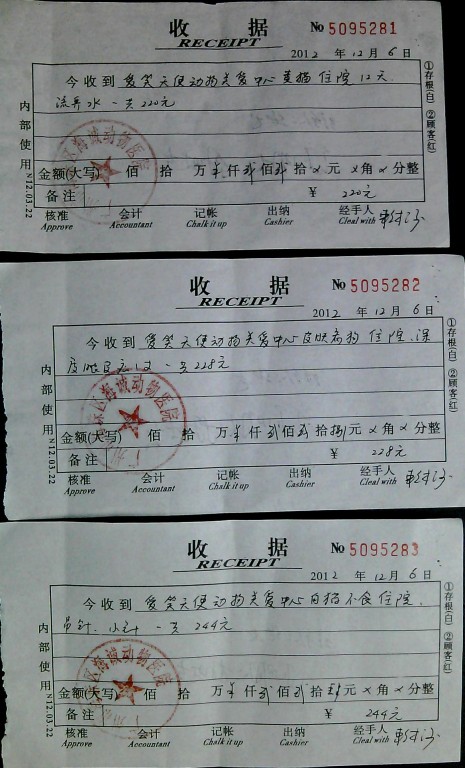 收 据
RECEIPT
No 5095281
2012 年 12 月 6 日
今收到 爱笑天使动物关爱中心 美猫 住院 12天
流鼻水 一共220元
金额(大写) 佰 拾 万 仟 贰佰 贰拾 元 角 分整
备注 ¥ 220元
核准 会计 记帐 出纳 经手人
Approve Accountant Chalk it up Cashier Cleal with
①存根(白) ②顾客(红)
内部使用 N12.03.22
收 据
RECEIPT
No 5095282
2012 年 12 月 6 日
今收到 爱笑天使动物关爱中心 皮肤病狗 住院.
一共228元
金额(大写) 佰 拾 万 仟 贰佰 贰拾捌元 角 分整
备注 ¥ 228元
核准 会计 记帐 出纳 经手人
Approve Accountant Chalk it up Cashier Cleal with
①存根(白) ②顾客(红)
内部使用 N12.03.22
海波动物医院
收 据
RECEIPT
No 5095283
2012 年 12 月 6 日
今收到 爱笑天使动物关爱中心 白猫不食 住院.
吊针. 小针 一共 244元
金额(大写) 佰 拾 万 仟 贰佰 拾 元 角 分整
备注 ¥ 244元
核准 会计 记帐 出纳 经手人
Approve Accountant Chalk it up Cashier Cleal with
①存根(白) ②顾客(红)
内部使用 N12.03.22